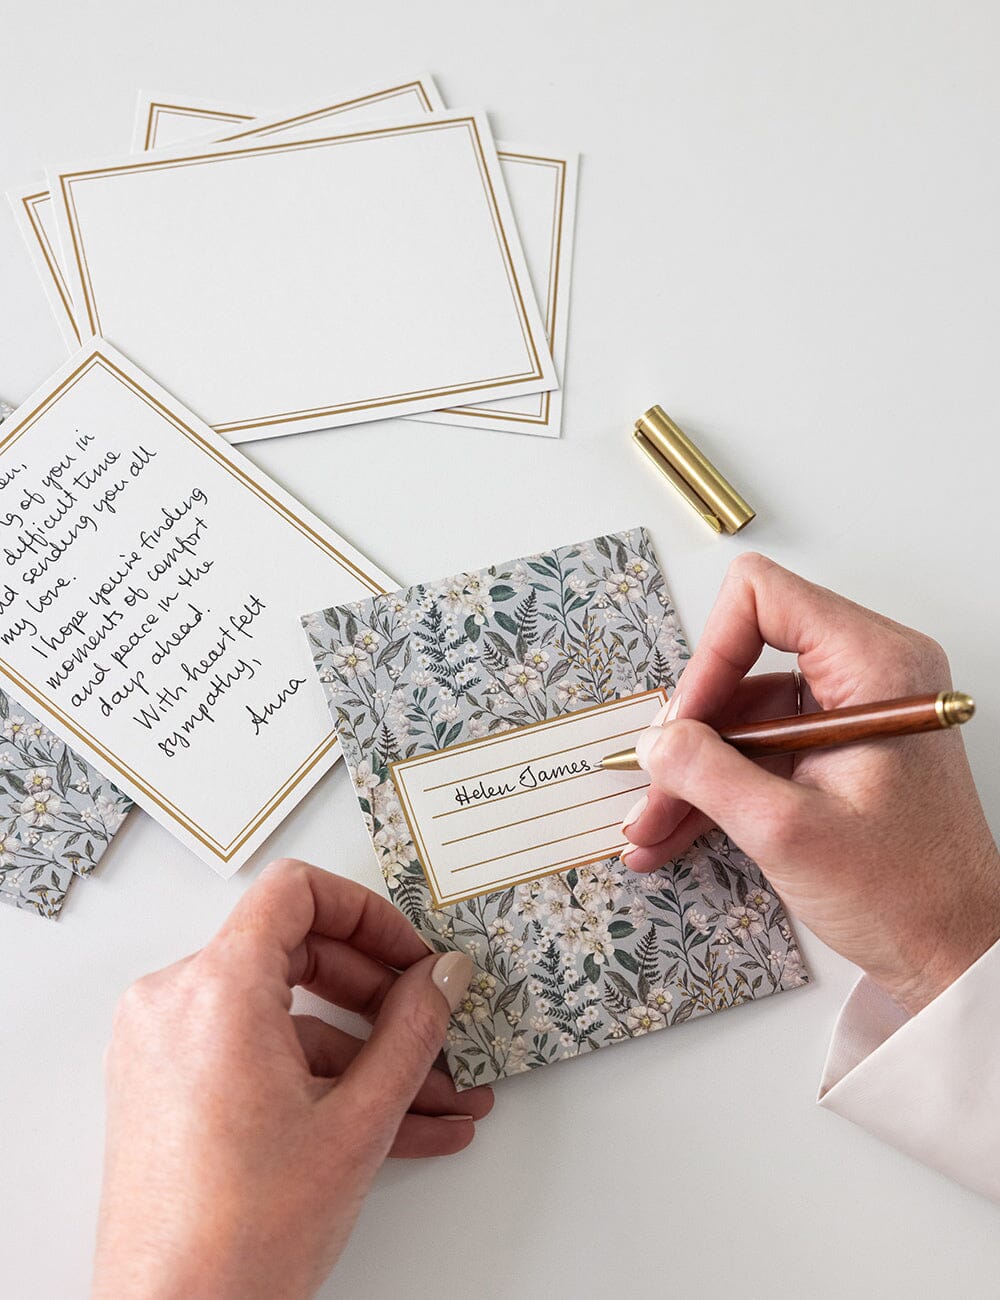 en,
g of you in
difficult time
nd sending you all
my love.
I hope you're finding
moments of comfort
and peace in the
days ahead.
With heartfelt
sympathy,
Anna
Helen James